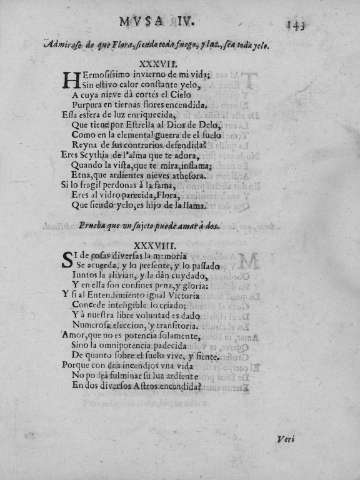 MVSA IV.
143
Admirase de que Flora, siendo toda fuego, y luz, sea toda yelo.
XXXVII.
HErmosissimo invierno de mi vida;
Sin estivo calor constante yelo,
A cuya nieve dà cortès el Cielo
Purpura en tiernas flores encendida.
Esta esfera de luz enriquecida,
Que tiene por Estrella al Dios de Delo,
Como en la elemental guerra de el suelo
Reyna de sus contrarios defendida?
Eres Scythia de l'alma que te adora,
Quando la vista, que te mira, inflama;
Etna, que ardientes nieves athesora.
Si lo fragil perdonas à la fama,
Eres al vidro parecida, Flora,
Que siendo yelo, es hijo de la llama.
Prueba que un sujeto puede amar à dos.
XXXVIII.
SI de cosas diversas la memoria
Se acuerda, y lo presente, y lo passado
Iuntos la alivian, y la dàn cuydado,
Y en ella son confines pena, y gloria:
Y si al Entendimiento igual Victoria
Concede inteligible lo criado;
Y à nuestra libre voluntad es dado
Numerosa eleccion, y transitoria.
Amor, que no es potencia solamente,
Sino la omnipotencia padecida
De quanto sobre el suelo vive, y siente.
Porque con dos incendios una vida
No podrà fulminar su luz ardiente
En dos diversos Astros encendida?
Veri